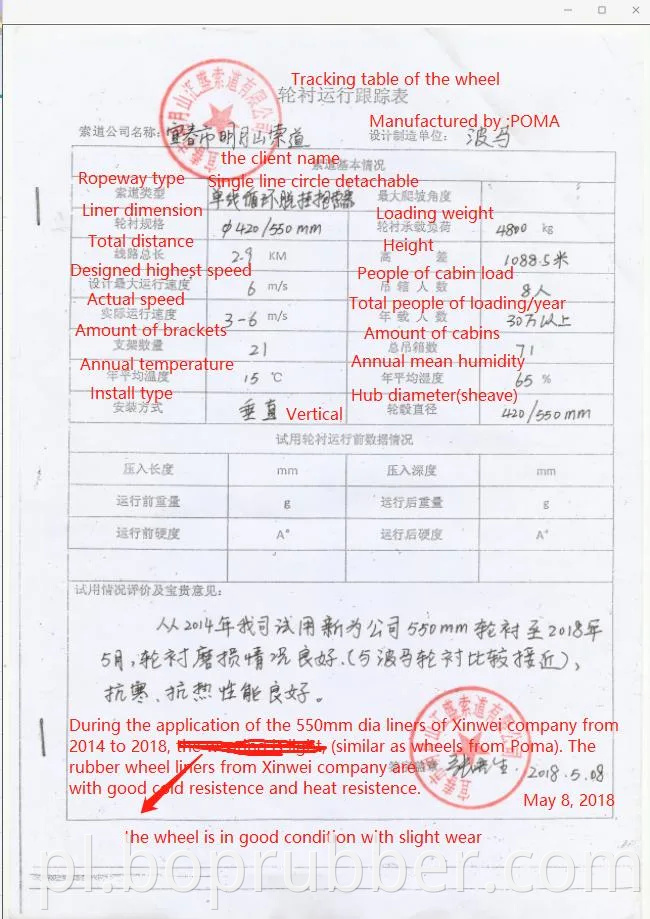 Tracking table of the wheel
轮衬运行跟踪表
Manufactured by :POMA
索道公司名称: 宜春市明月山索道 设计制造单位: 波马
the client name
索道基本情况
Ropeway type Single line circle detachable
索道类型 单线循环脱挂抱索器 最大爬坡角度
Liner dimension Loading weight
轮衬规格 φ420/550mm 轮衬承载负荷 4800 kg
Total distance Height
线路总长 2.9 KM 高 差 1088.5米
Designed highest speed People of cabin load
设计最大运行速度 6 m/s 吊箱人数 8人
Actual speed Total people of loading/year
实际运行速度 3-6 m/s 年载人数 30万以上
Amount of brackets Amount of cabins
支架数量 21 总吊箱数 71
Annual temperature Annual mean humidity
年平均温度 15 ℃ 年平均湿度 65 %
Install type Hub diameter(sheave)
安装方式 垂直 Vertical 轮毂直径 420/550mm
试用轮衬运行前数据情况
压入长度 mm 压入深度 mm
运行前重量 g 运行后重量 g
运行前硬度 A° 运行后硬度 A°
试用情况评价及宝贵意见:
从2014年我司试用新为公司550mm轮衬至2018年
5月,轮衬磨损情况良好.(与波马轮衬比较接近),
抗寒、抗热性能良好。
During the application of the 550mm dia liners of Xinwei company from
2014 to 2018, (similar as wheels from Poma). The
rubber wheel liners from Xinwei company are
with good cold resistence and heat resistence.
2018.5.08
May 8, 2018
the wheel is in good condition with slight wear
pl.boprubber.com